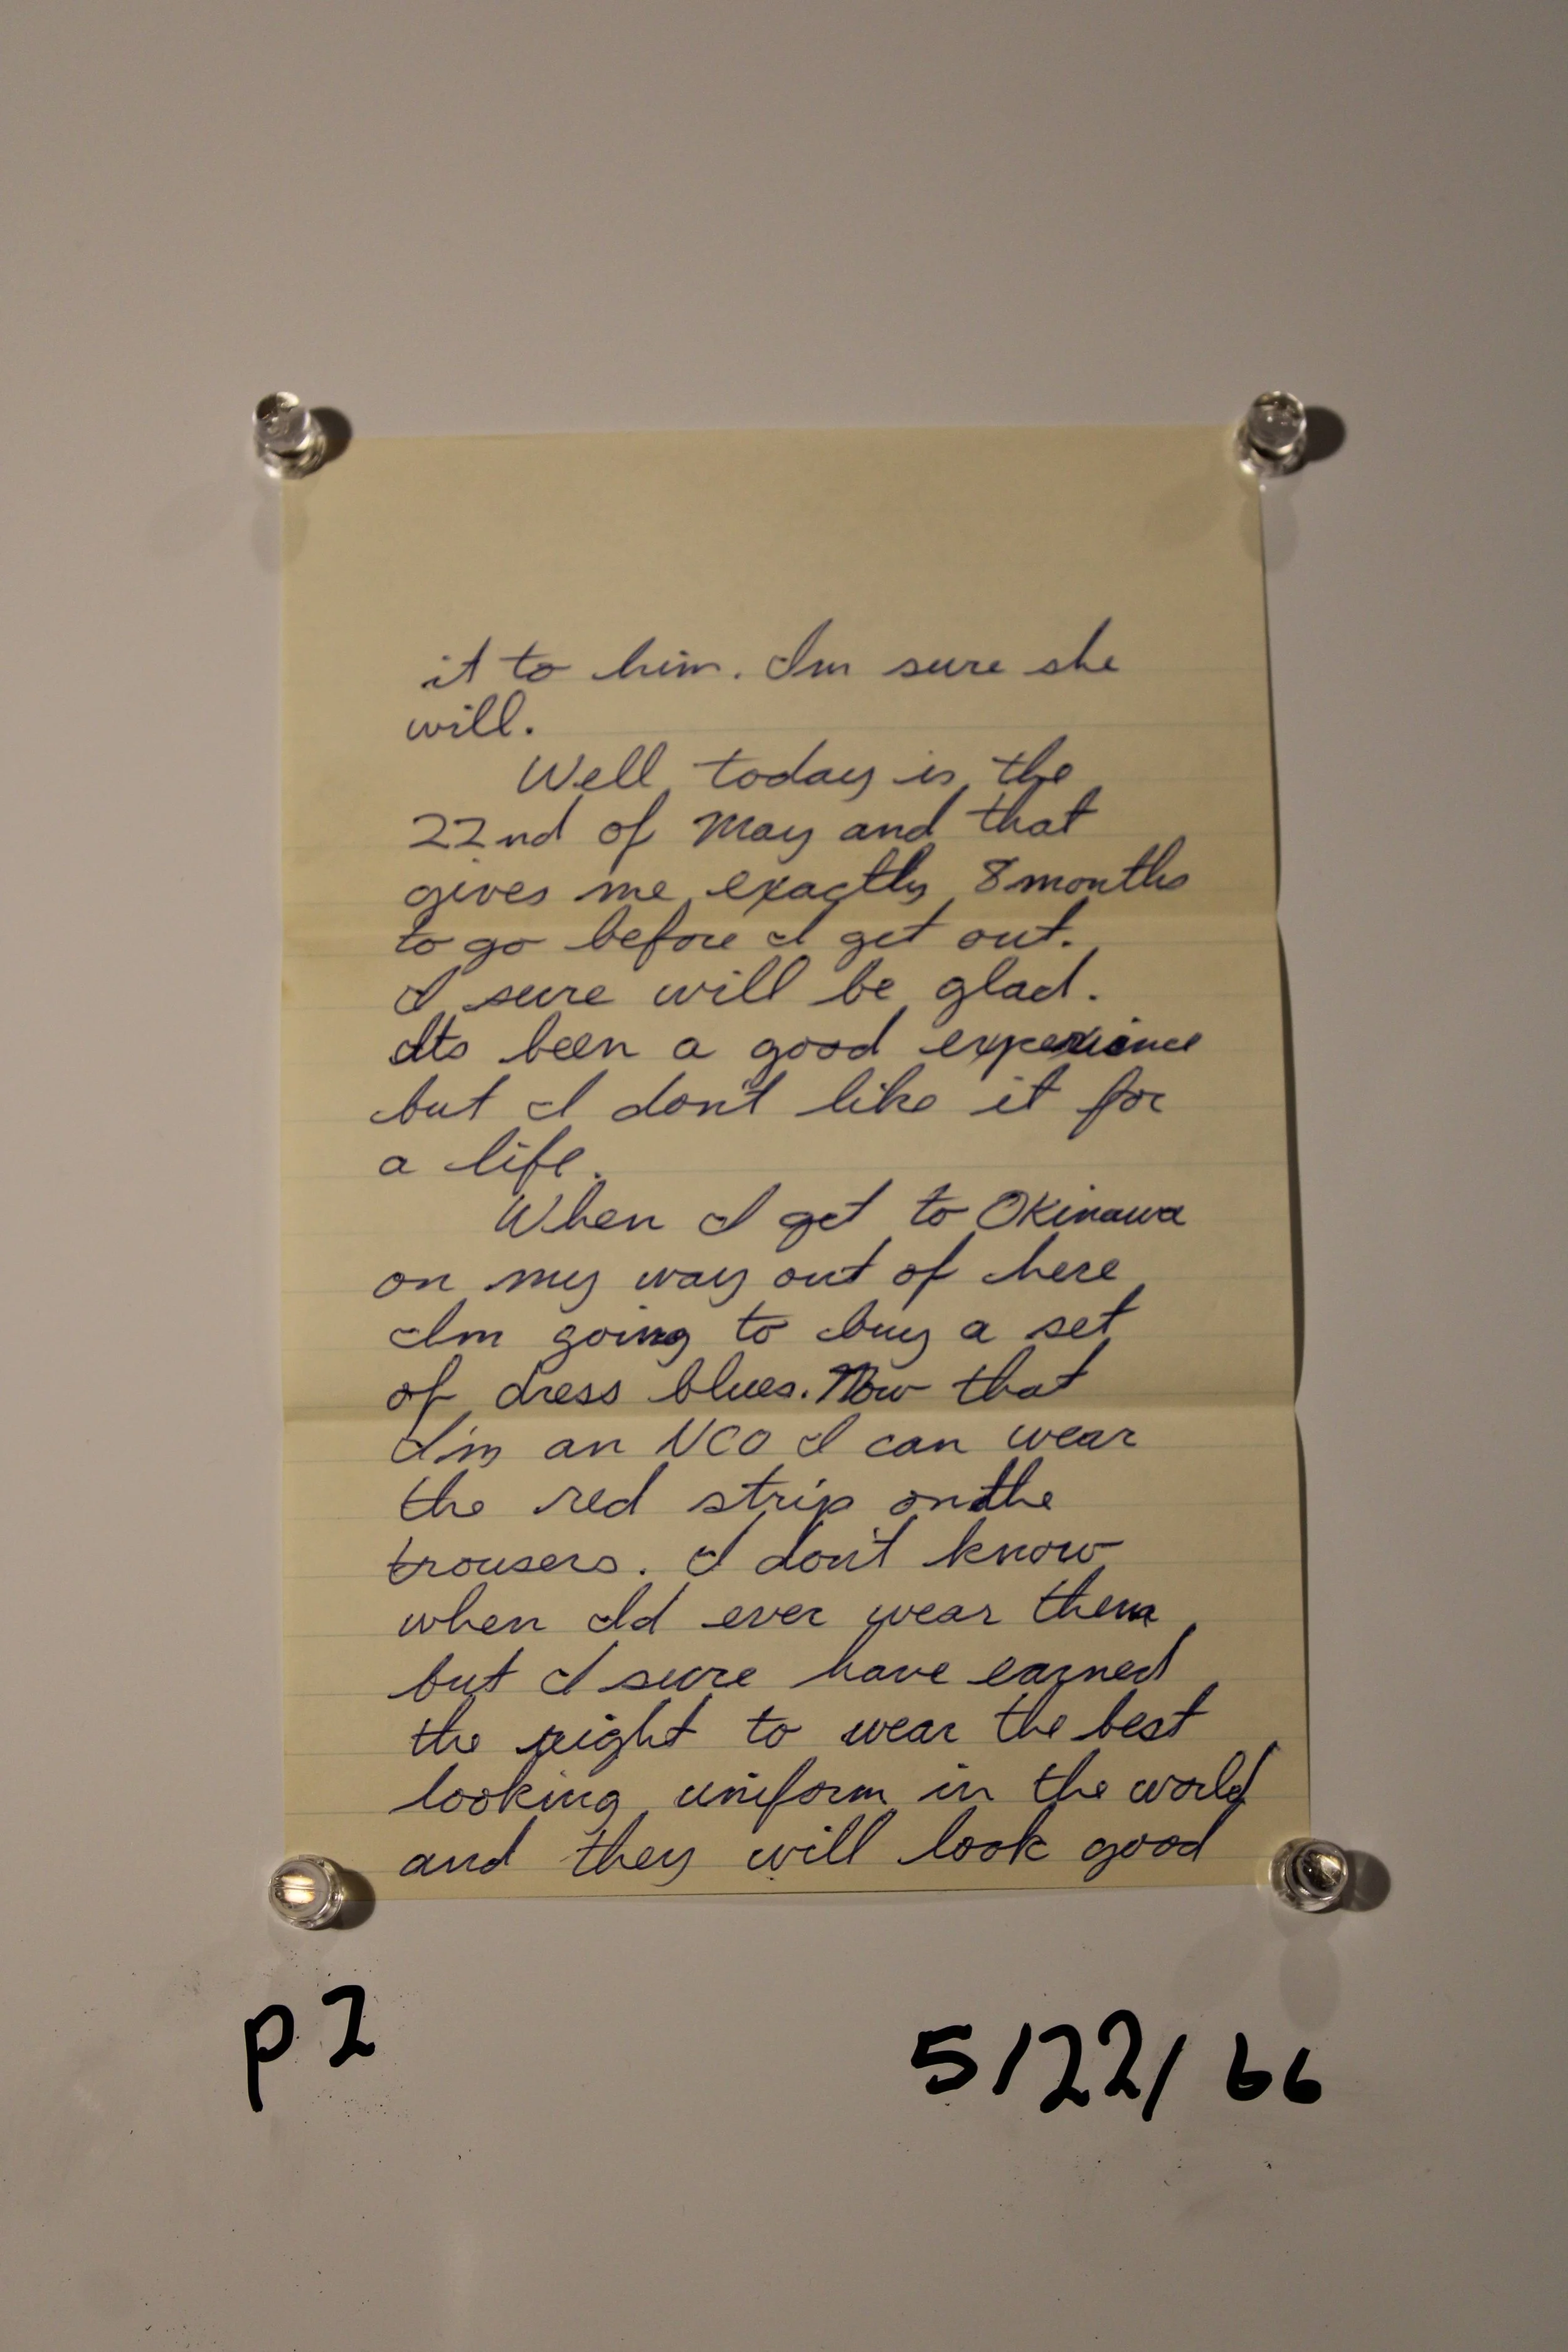 it to him. Im sure she
will.
Well today is the
22nd of May and that
gives me exactly 8 months
to go before I get out.
I sure will be glad.
Its been a good experience
but I don't like it for
a life.
When I get to Okinawa
on my way out of here
Im going to buy a set
of dress blues. Now that
I'm an NCO I can wear
the red strip on the
trousers. I don't know
when Id ever wear them
but I sure have earned
the right to wear the best
looking uniform in the world
and they will look good
p 2
5/22/66